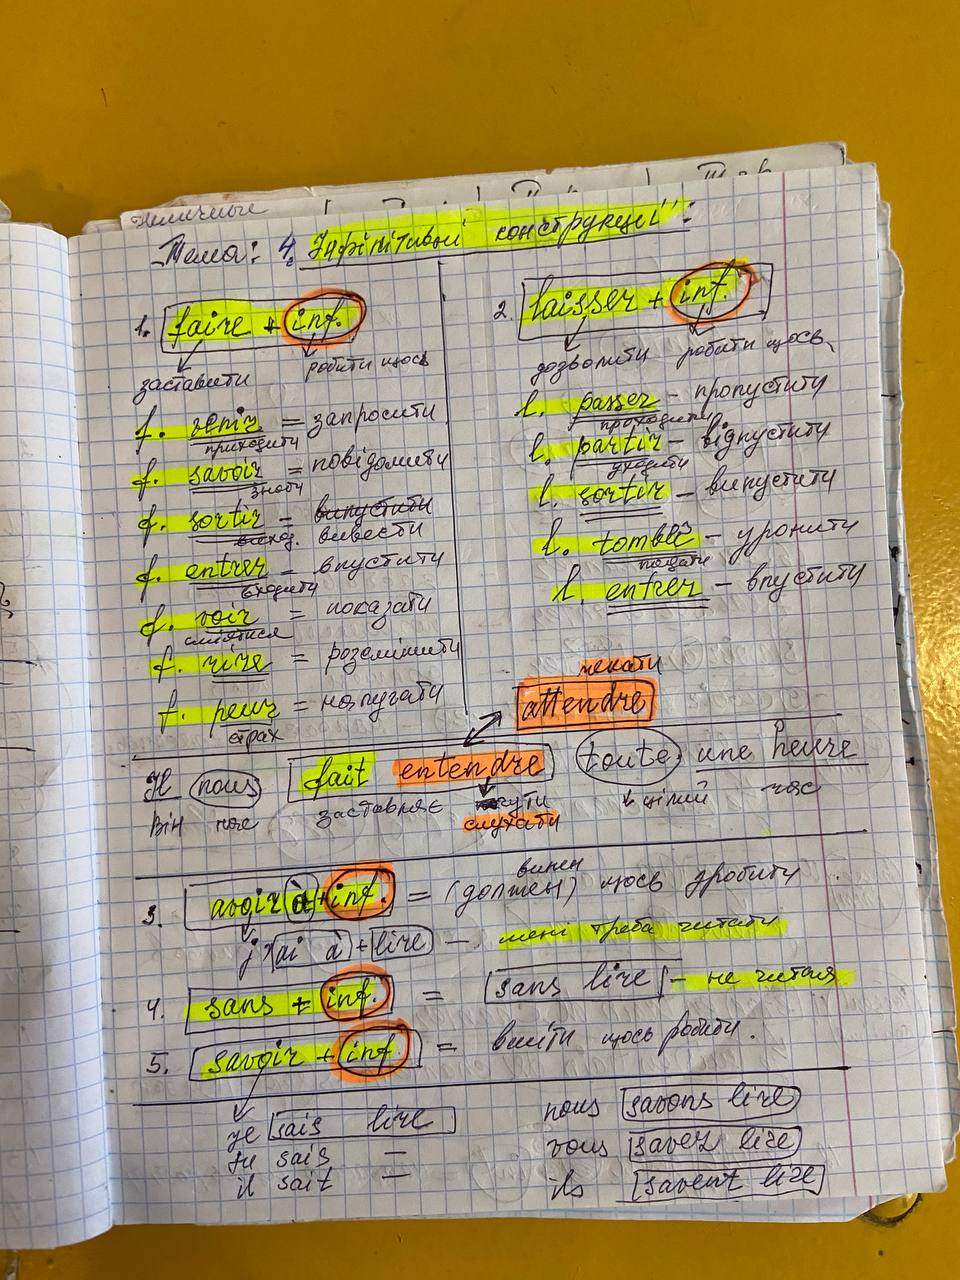 Тема: 4. Інфінітивні конструкції":
1. faire + inf.
заставити робити щось
f. venir = запросити
приходити
f. savoir = повідомити
знати
f. sortir = випустити
виход. вивести
f. entrer - впустити
входити
f. voir = показати
сміятися
f. rire = розсмішити
f. peur = напугати
страх
2. laisser + inf.
дозволити робити щось
l. passer - пропустити
проходити
l. partir - відпустити
уходити
l. sortir - випустити
l. tombé - уронити
падати
l. entrer - впустити
чекати
attendre
Il nous fait entendre toute une heure
Він нас заставляє чути цілий час
слухати
3. avoir à + inf. = (должен) щось зробити
винен
j'ai à + lire - мені треба читати
4. sans + inf. = sans lire - не читая
5. savoir + inf. = вміти щось робити.
je sais lire nous savons lire
tu sais — vous savez lire
il sait — ils savent lire